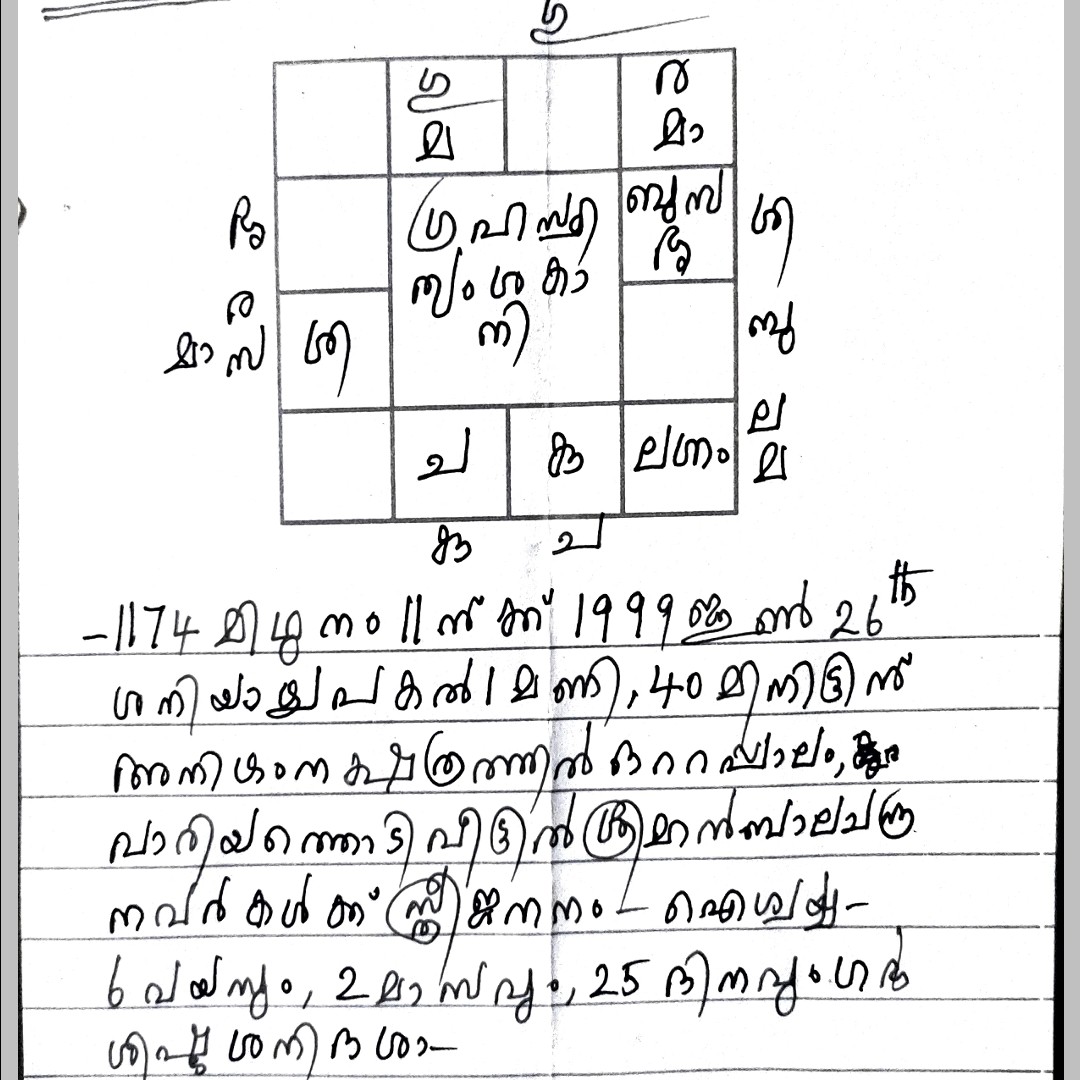 ഗു
ഗു
മ
ര
മാ
ഗ്രഹസ്ഥി
ത്യംശകാ
നി
ബുസ
ശു
ശി
ര
മാ സ
ശി
ബു
ല
മ
ച
കു
ലഗ്നം
കു ച
-1174 മിഥുനം 11ന് ക്ക് 1999 ജൂൺ 26th
ശനിയാഴ്ച പകൽ 1 മണി, 40 മിനിട്ടിന്
അനിഴം നക്ഷത്രത്തിൽ ഒറ്റപ്പാലം,
വാരിയത്തൊടി വീട്ടിൽ ശ്രീമാൻ ബാലചന്ദ്ര
നവർകൾക്ക് സ്ത്രീജനനം - ഐശ്വര്യ -
6 വയസും, 2 മാസവും, 25 ദിനവും ഗർഭ
ശിഷ്ട ശനിദശാ -